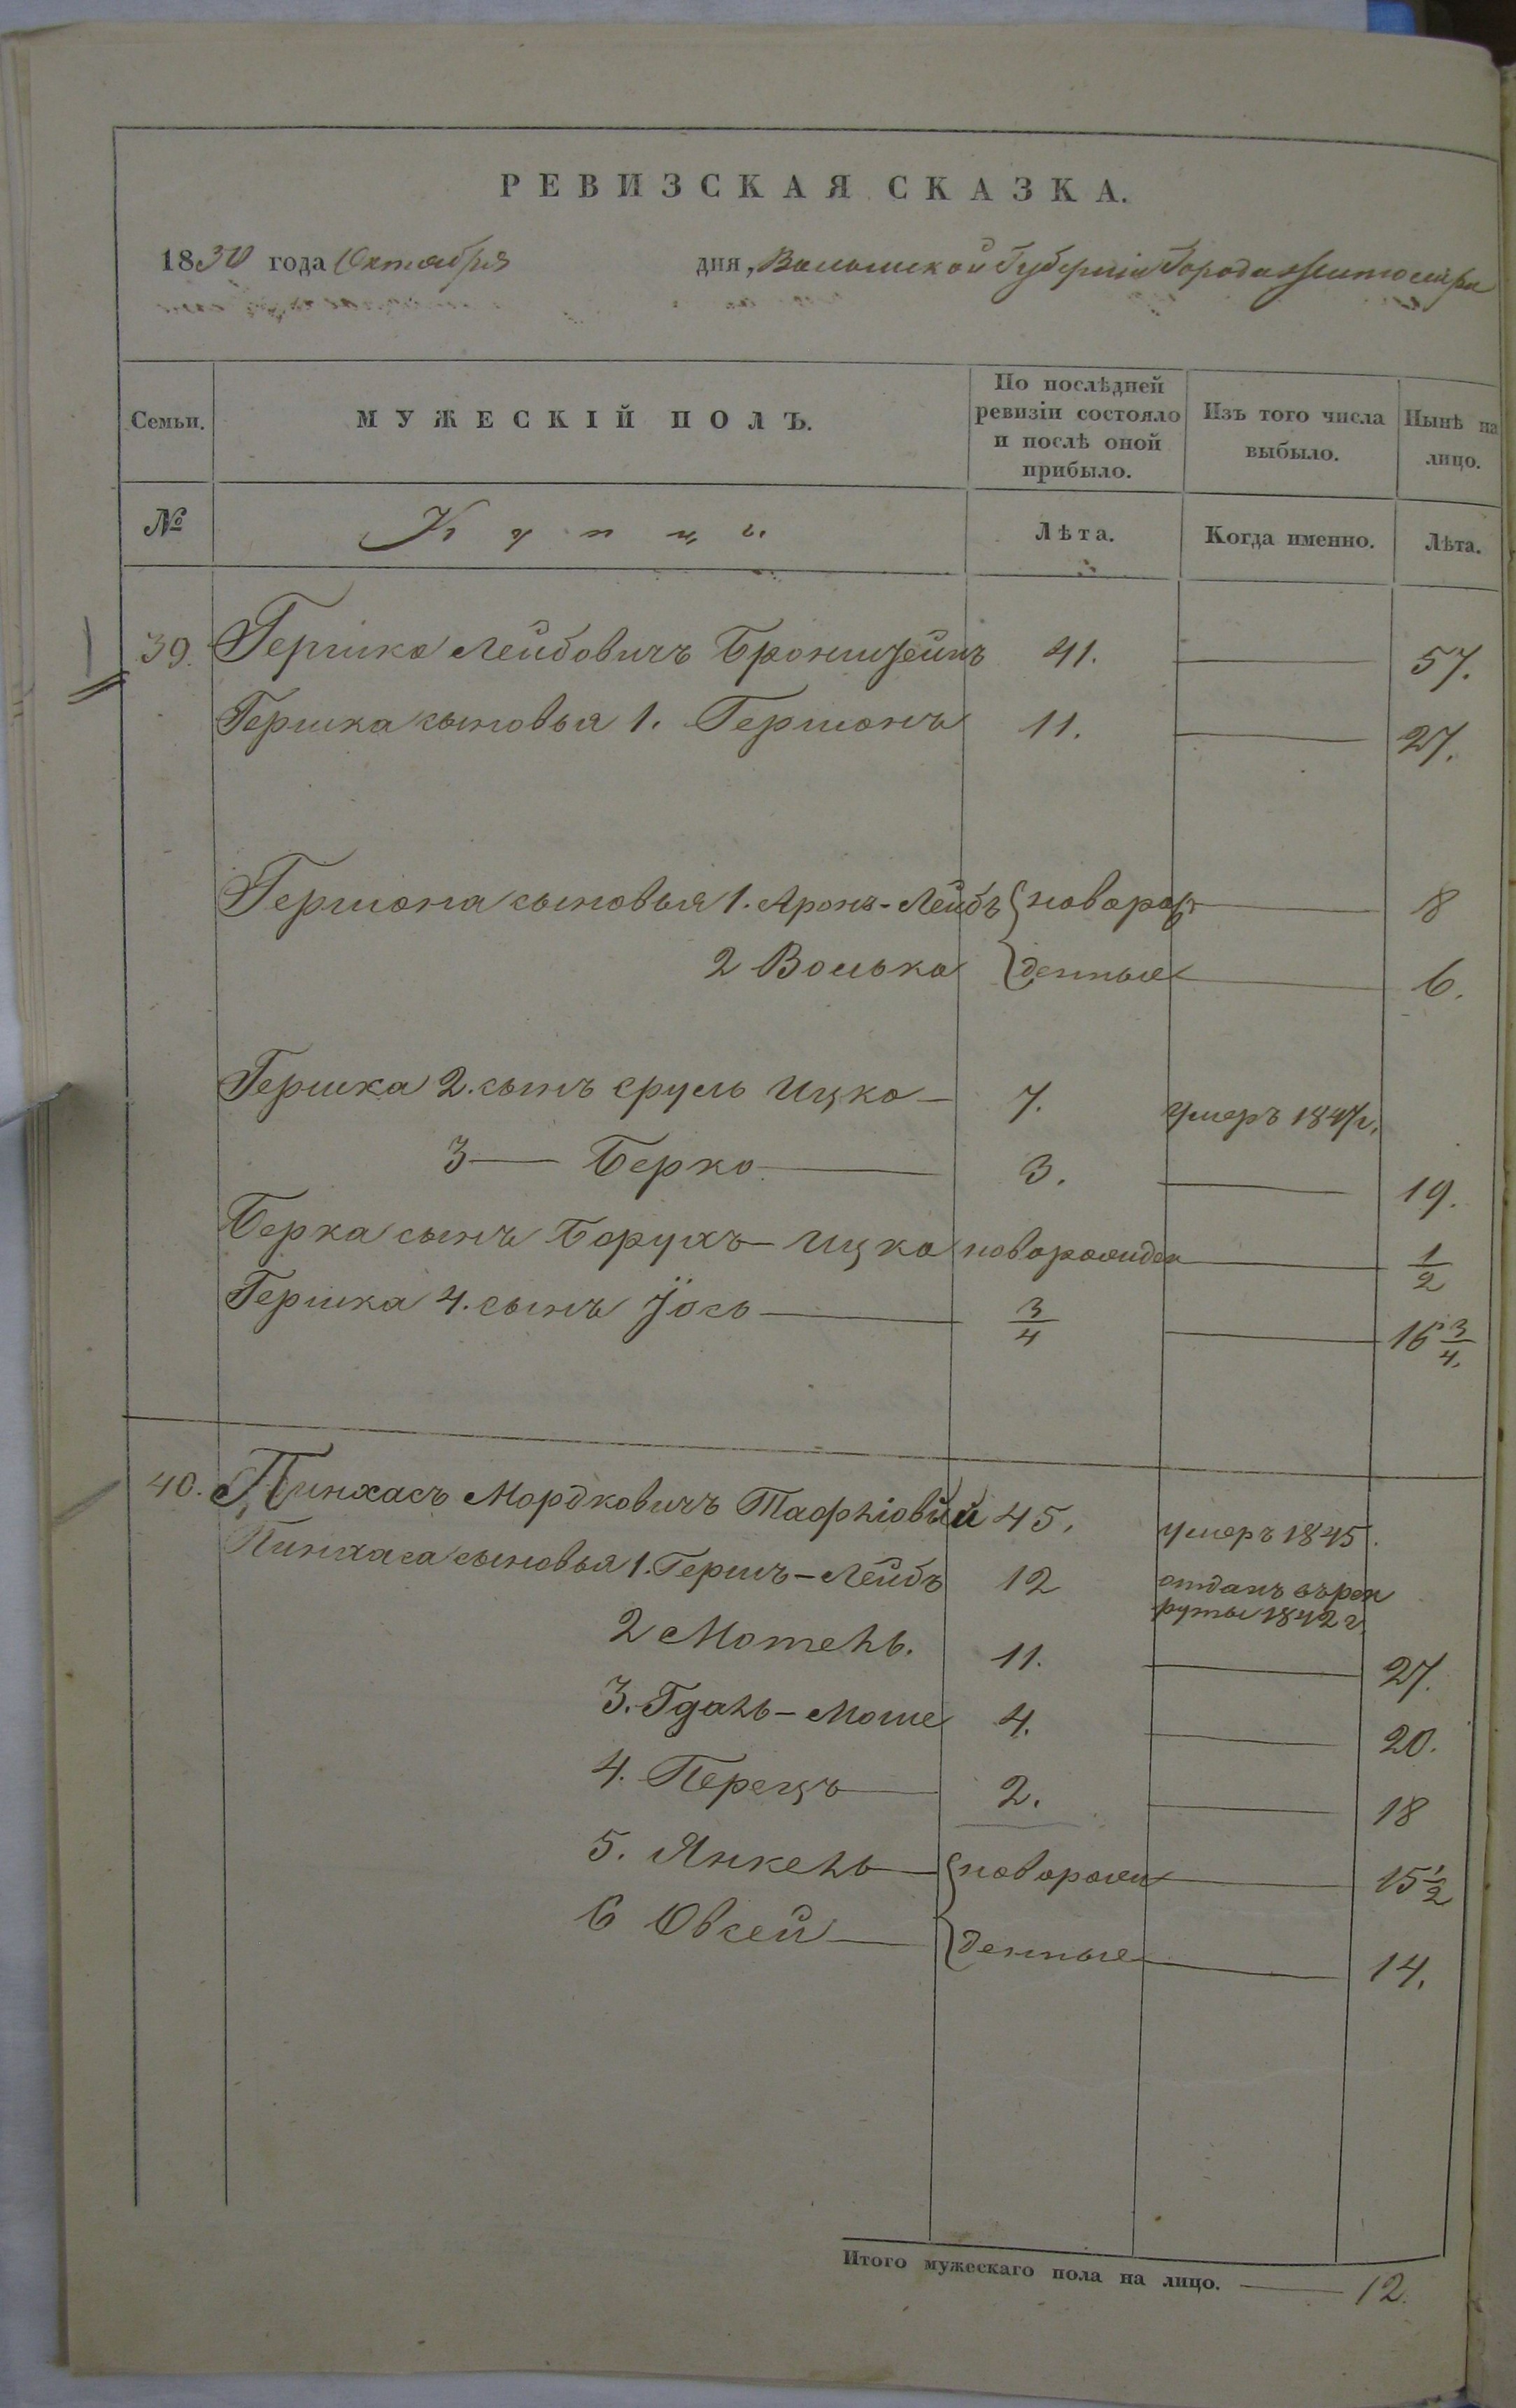 РЕВИЗСКАЯ СКАЗКА.
1830 года Октября дня, Волынской Губерніи Города Житомира
Семьи. МУЖЕСКІЙ ПОЛЪ. По послѣдней ревизіи состояло и послѣ оной прибыло. Изъ того числа выбыло. Нынѣ на лицо.
№ Купцы Лѣта. Когда именно. Лѣта.
39. Гершко Лейбовичъ Бронштейнъ 41. — 57.
Гершка сыновья 1. Гершонъ 11. — 27.
Гершона сыновья 1. Аронъ-Лейбъ {новорож — 8
2 Волько {денные — 6.
Гершка 2. сынъ Сруль Ицко — 7. умеръ 1847г.
3 — Берко — 3. — 19.
Берка сынъ Борухъ-Ицко новорожден — 1/2
Гершка 4. сынъ Јось — 3/4 — 16 3/4.
40. Пинхасъ Мордковичъ 45. умеръ 1845.
Пинхаса сыновья 1. Гершъ-Лейбъ 12 отданъ въ рек
руты 1842 г
2 Мотель. 11. — 27.
3. Гдаль-Моше 4. — 20.
4. Перецъ — 2. — 18
5. Янкель — {новорож — 15 1/2
6 Овсей — {денные — 14.
Итого мужескаго пола на лицо. — 12.